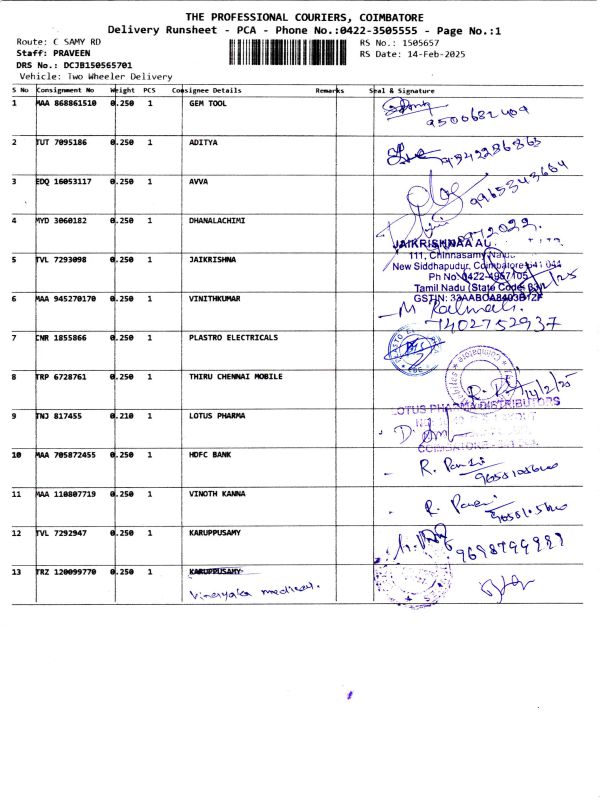 THE PROFESSIONAL COURIERS, COIMBATORE
Delivery Runsheet - PCA - Phone No.:0422-3505555 - Page No.:1
Route: C SAMY RD
RS No.: 1505657
Staff: PRAVEEN
RS Date: 14-Feb-2025
DRS No.: DCJB150565701
Vehicle: Two Wheeler Delivery
S No Consignment No Weight PCS Consignee Details Remarks Seal & Signature
1 MAA 868861510 0.250 1 GEM TOOL
9500682409
2 TUT 7095186 0.250 1 ADITYA
9842236863
3 EDQ 16053117 0.250 1 AVVA
9965343664
4 MYD 3060182 0.250 1 DHANALACHIMI
JAIKRISHNAA AU
5 TVL 7293098 0.250 1 JAIKRISHNA
111, Chinnasamy
New Siddhapudur, Coimbatore-641 044
Ph No 0422-4957105
Tamil Nadu (State Code
6 MAA 945270170 0.250 1 VINITHKUMAR
7402752937
7 CNR 1855866 0.250 1 PLASTRO ELECTRICALS
8 TRP 6728761 0.250 1 THIRU CHENNAI MOBILE
14/2/25
9 TNJ 817455 0.210 1 LOTUS PHARMA
LOTUS PHARMA DISTRIBUTORS
10 MAA 705872455 0.250 1 HDFC BANK
11 MAA 110807719 0.250 1 VINOTH KANNA
12 TVL 7292947 0.250 1 KARUPPUSAMY
13 TRZ 120099770 0.250 1 KARUPPUSAMY
Vinayaka medical.